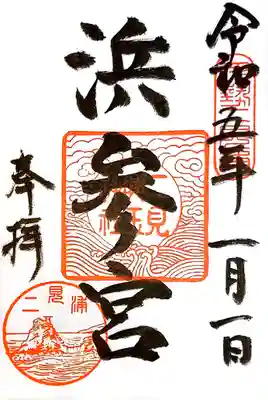 令和五年 一月一日
浜参宮
奉拝
二見浦